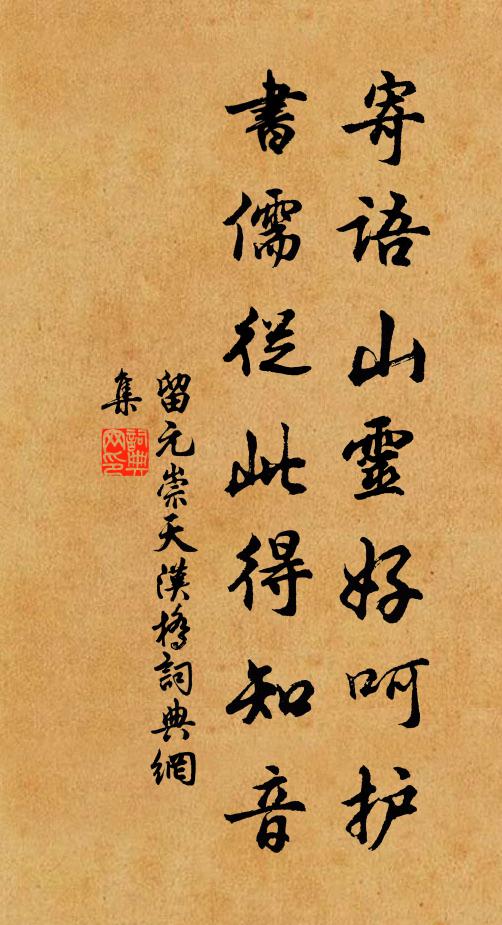 寄語山靈好呵护
書儒從此得知音
留元崇天漢橋詞典網
集
詞典網印